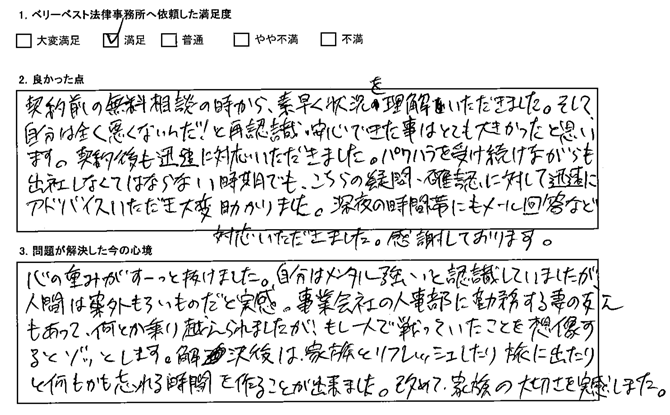 1. ベリーベスト法律事務所へ依頼した満足度
大変満足 満足 普通 やや不満 不満
2. 良かった点
契約前の無料相談の時から、素早く状況を理解いただきました。そして、
自分は全く悪くないんだ!と再認識、安心できた事はとても大きかったと思い
ます。契約後も迅速に対応いただきました。パワハラを受け続けながらも
出社しなくてはならない時期でも、こちらの疑問、確認に対して迅速に
アドバイスいただき大変助かりました。深夜の時間帯にもメール回答など
対応いただきました。感謝しております。
3. 問題が解決した今の心境
心の重みがすーっと抜けました。自分はメンタル強いと認識していましたが、
人間は案外もろいものだと実感。事業会社の人事部に勤務する妻の支え
もあって、何とか乗り越えられましたが、もし一人で戦っていたことを想像す
るとゾッとします。解決後は、家族とリフレッシュしたり旅に出たり
と何もかも忘れる時間を作ることが出来ました。改めて、家族の大切さを実感しました。